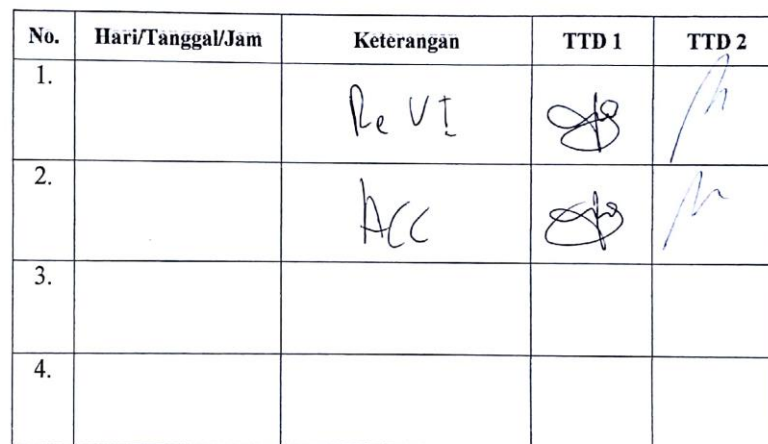 No. Hari/Tanggal/Jam Keterangan TTD 1 TTD 2
1. Re VI
2. ACC
3.
4.